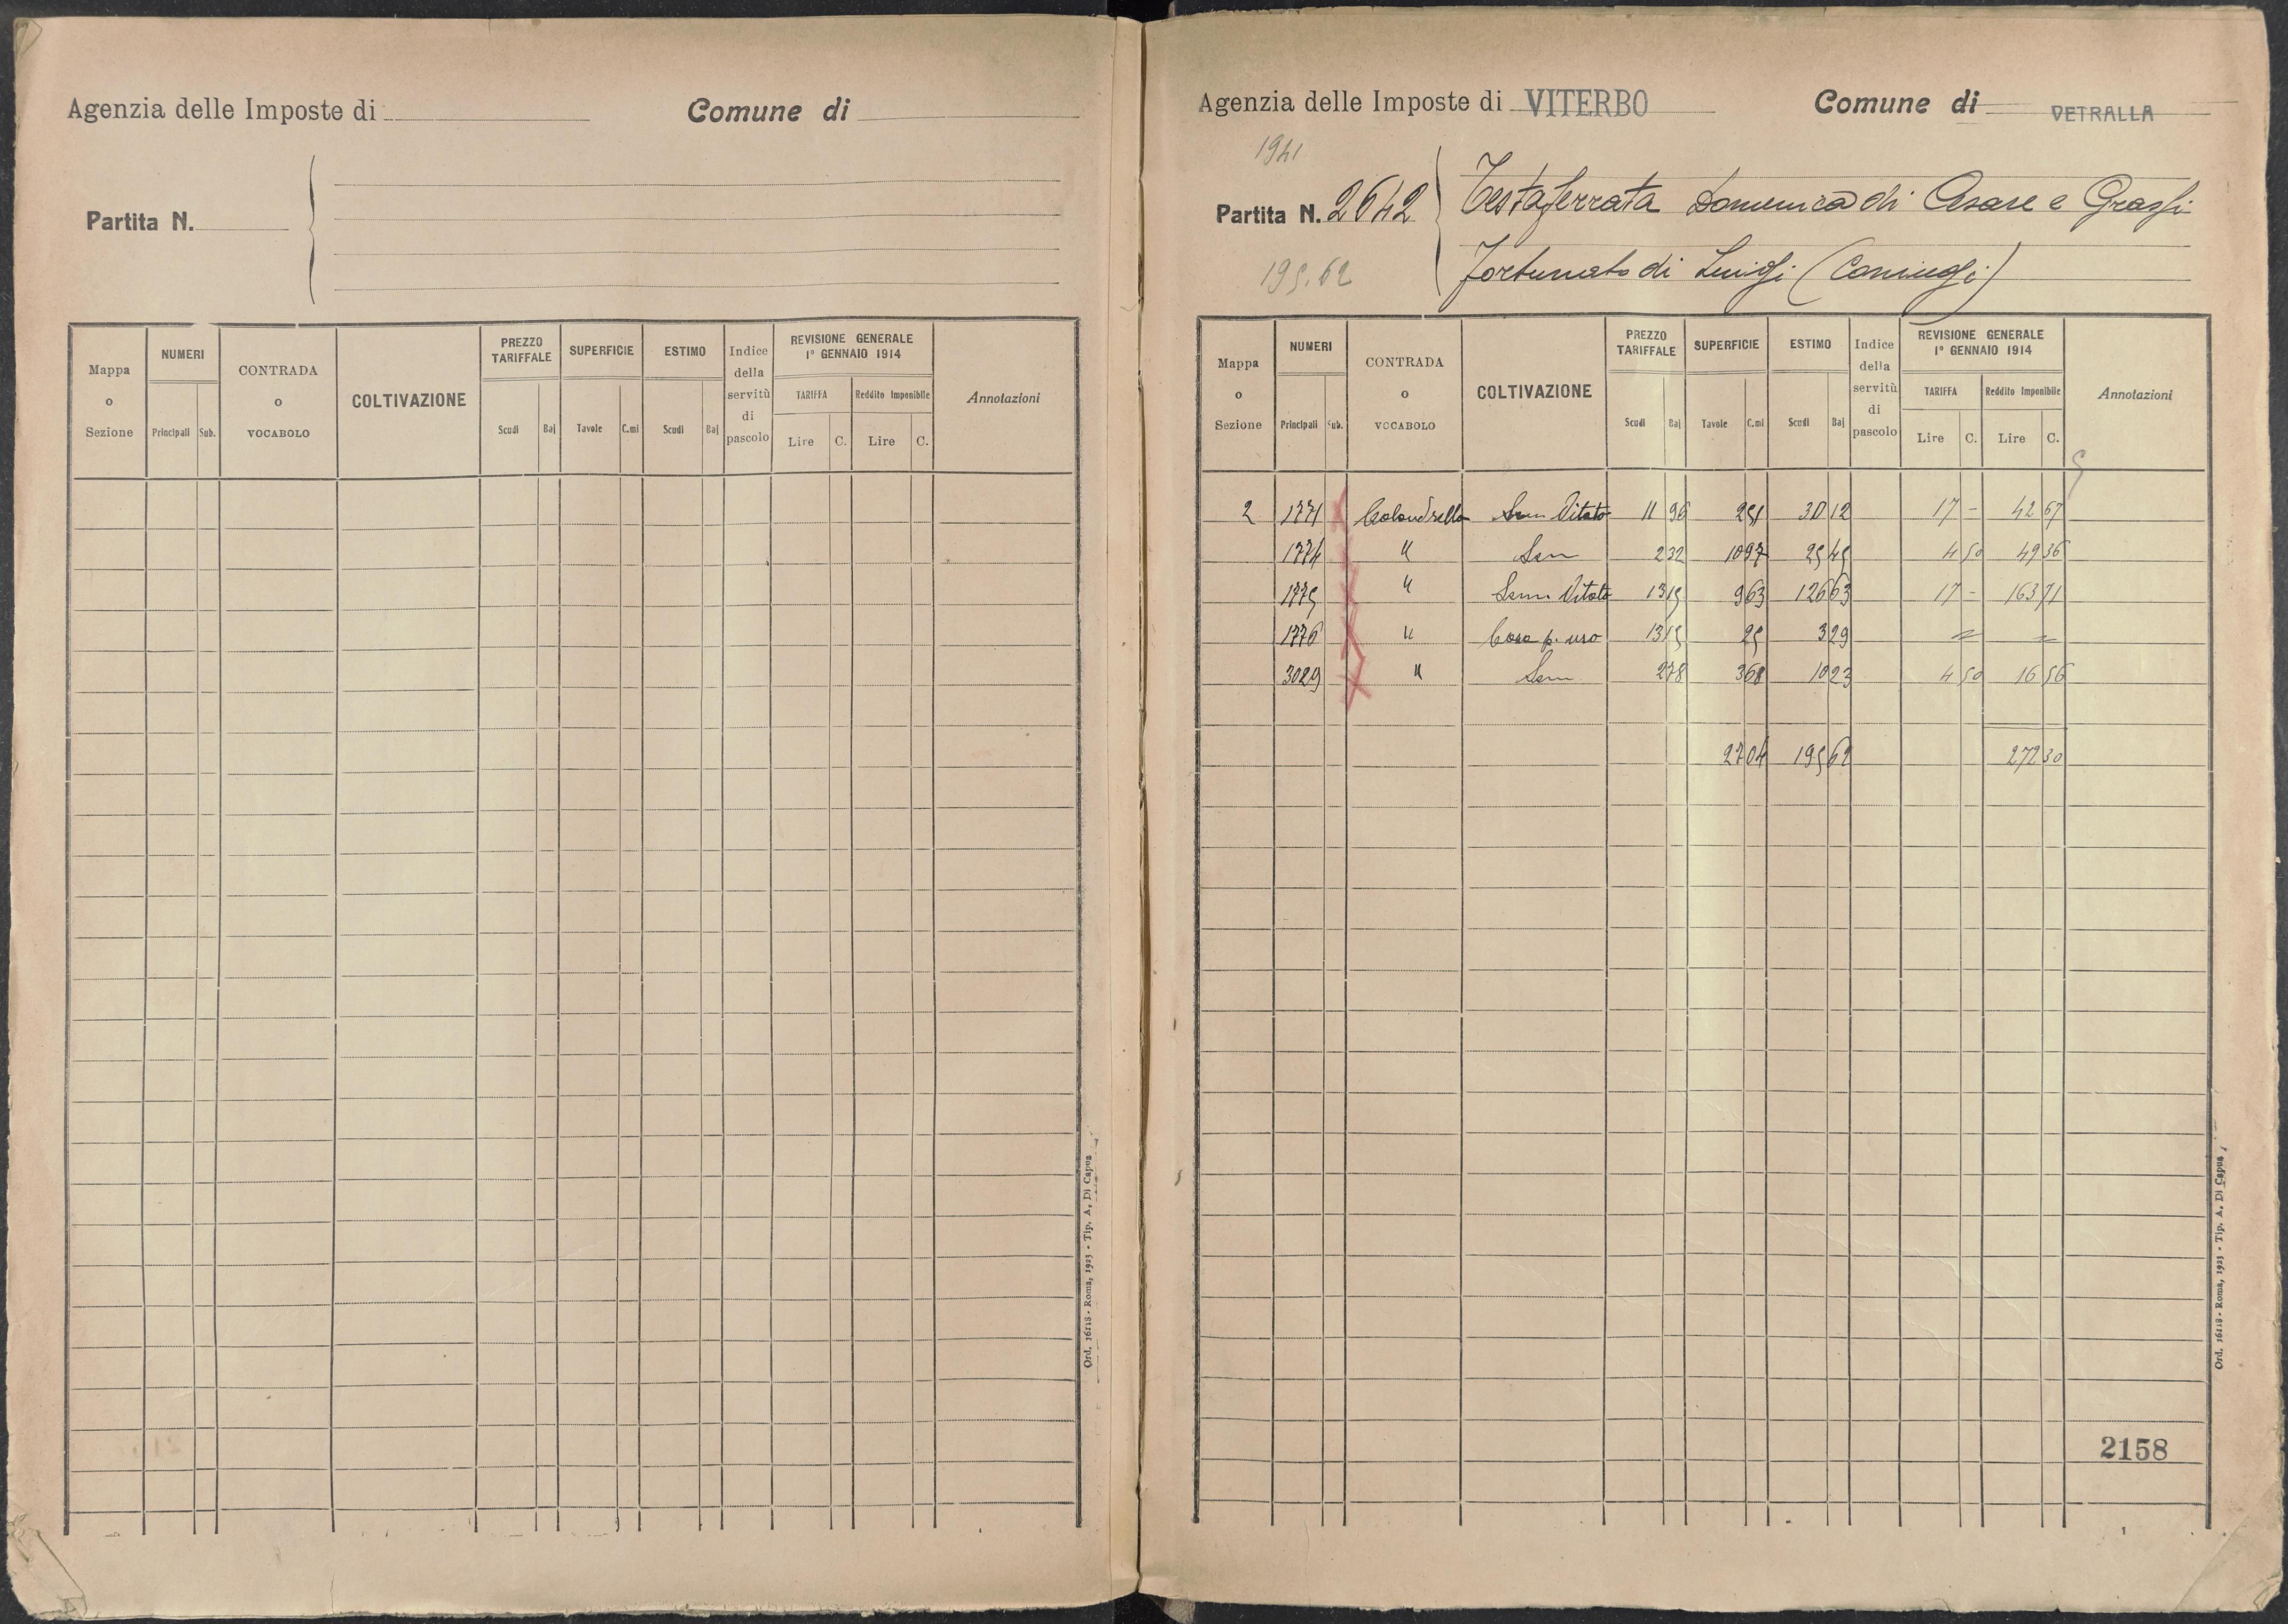 Agenzia delle Imposte di
Comune di
Partita N.
Mappa o Sezione
NUMERI
Principali Sub.
CONTRADA o VOCABOLO
COLTIVAZIONE
PREZZO TARIFFALE
Scudi Baj
SUPERFICIE
Tavole C.mi
ESTIMO
Scudi Baj
Indice della servitù di pascolo
REVISIONE GENERALE
1° GENNAIO 1914
TARIFFA Reddito Imponibile
Lire C. Lire C.
Annotazioni
Ord. 16118 - Roma, 1923 - Tip. A. Di Capua
Agenzia delle Imposte di VITERBO
Comune di VETRALLA
1941
Partita N. 2642
195.62
Testaferrata Domenica di Cesare e Grassi
Fortunato di Luigi (Coniugi)
Mappa o Sezione
NUMERI
Principali Sub.
CONTRADA o VOCABOLO
COLTIVAZIONE
PREZZO TARIFFALE
Scudi Baj
SUPERFICIE
Tavole C.mi
ESTIMO
Scudi Baj
Indice della servitù di pascolo
REVISIONE GENERALE
1° GENNAIO 1914
TARIFFA Reddito Imponibile
Lire C. Lire C.
Annotazioni
2 1771 Sem Vitato 11 96 2 51 30 12 17 - 42 67
1774 " Sem 2 32 10 97 25 45 4 50 49 36
1775 " Sem. Vitato 13 15 9 63 126 63 17 - 163 71
1776 " Casa p. uso 13 15 25 3 29 = =
3029 " Sem 2 78 3 68 10 23 4 50 16 56
27 04 195 62 272 30
2158
Ord. 16118 - Roma, 1923 - Tip. A. Di Capua